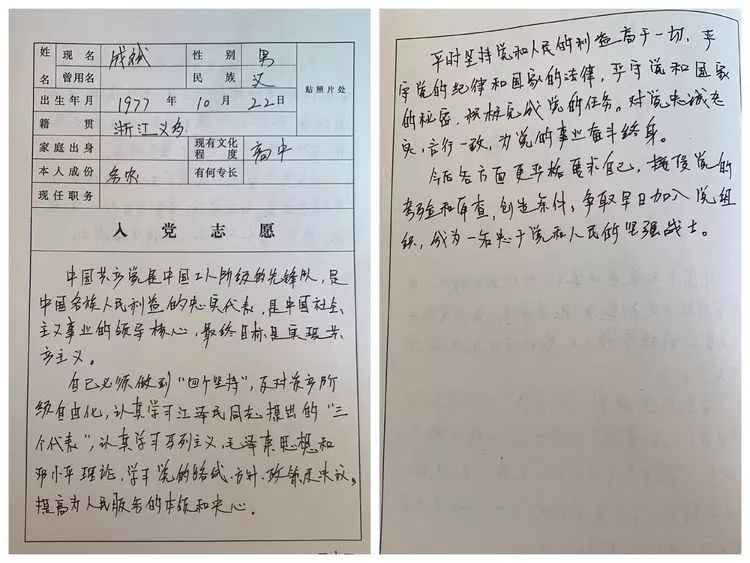 姓 现名 成斌 性别 男
名 曾用名 民族 汉 贴照片处
出生年月 1977 年 10 月 22日
籍贯 浙江义乌
家庭出身 现有文化程度 高中
本人成份 务农 有何专长
现任职务
入党志愿
中国共产党是中国工人阶级的先锋队，是
中国各族人民利益的忠实代表，是中国社会
主义事业的领导核心，最终目标是实现共
产主义。
自己必须做到“四个坚持”，反对资产阶
级自由化，认真学习江泽民同志提出的“三
个代表”，认真学习马列主义，毛泽东思想和
邓小平理论，学习党的路线、方针、政策及决议，
提高为人民服务的本领和决心。
平时坚持党和人民的利益高于一切，严
守党的纪律和国家的法律，严守党和国家
的秘密，积极完成党的任务。对党忠诚老
实，言行一致，为党的事业奋斗终身。
今后各方面更严格要求自己，接受党的
考验和审查，创造条件，争取早日加入党组
织，成为一名忠于党和人民的坚强战士。